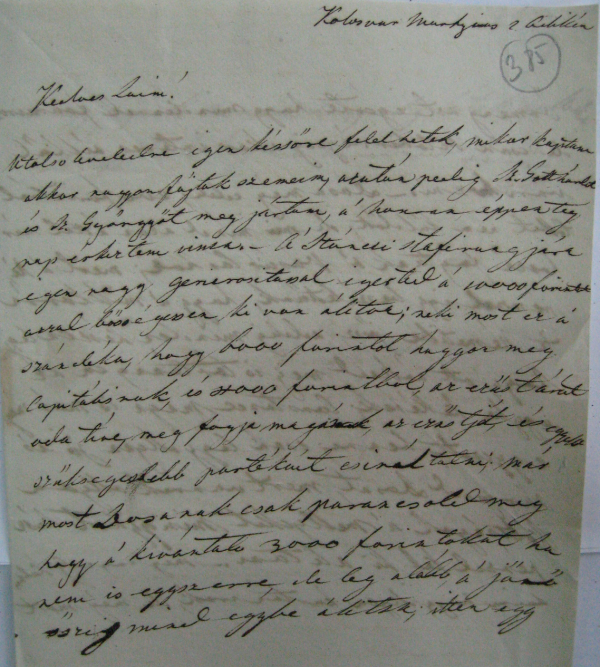 Kolosvar Martzius 2 dikán
385
Kedves Zuim!
Utolso leveledre igen késsöre felelhetek, mikor kaptam
akkor nagyon fájtak szemeim, azután pedig Sz. Gothárdot
és N. Gyöngyöt meg jártam, á honnan éppen teg
nap érkeztem vissza. – Á Stáncsi stafirungjára
igen nagy generositással igerted á 10000 forintot
azzal bösségesen ki van álitva; neki most ez á
szándéka, hogy 6000 forintot hagyon meg
Capitálisnak, és 4000 forintbol, az ezüst árát
oda téve, meg fogja magának az ezüstjét, és egyebb
szükségesebb portékáit csináltatni; már
most Dosanak csak parancsold meg
hogy á kivántato 3000 forintokat ha
nem is egyszerre, de leg alább á jövö
öszig mind egybe álitsa, itten egy